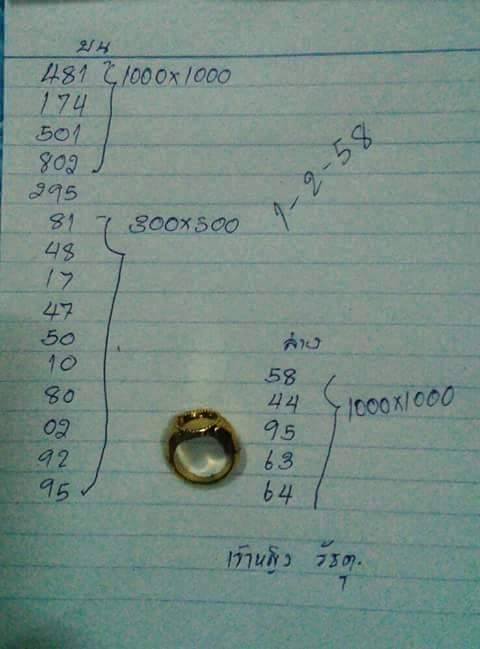 บน
481 1000x1000
174
501
802
295
81 300x300
48
17
47
50
10
80
02
92
95
1-2-58
ล่าง
58
44 1000x1000
95
63
64
เจ้าหญิง